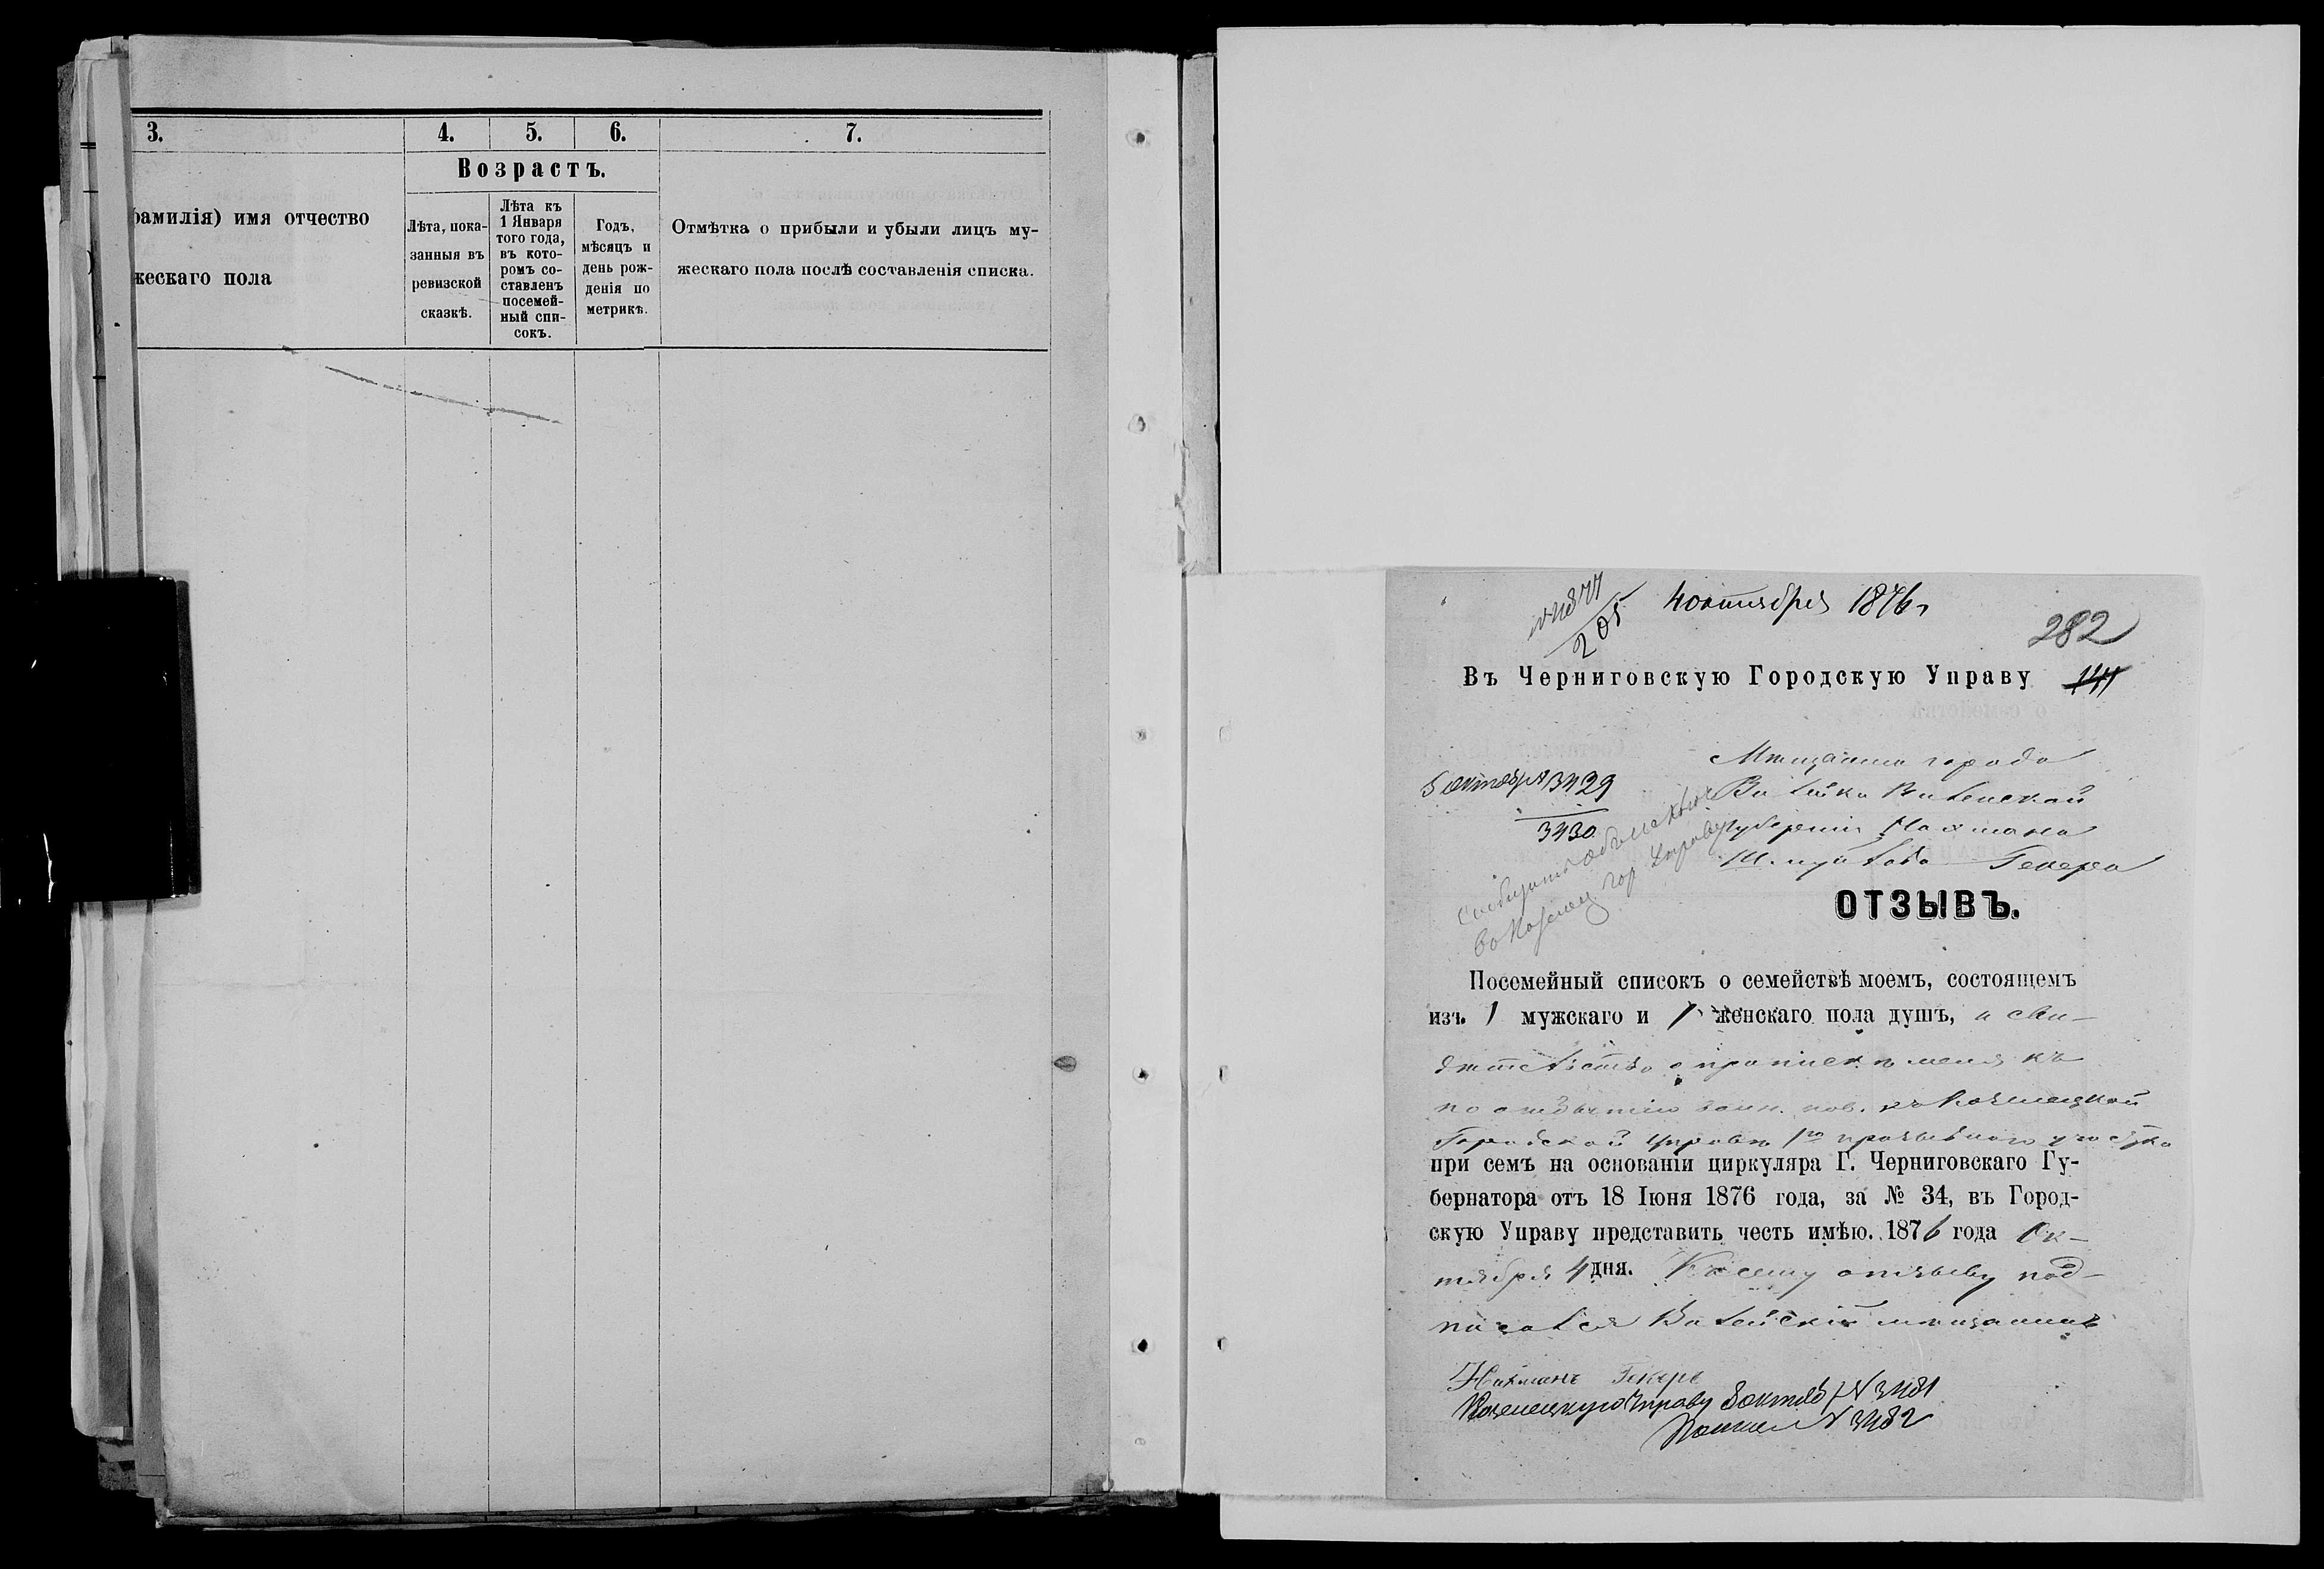 3. 4. 5. 6. 7.
Возрастъ.
фамилія) имя отчество
жескаго пола
Лѣта, пока-
занныя въ
ревизской
сказкѣ.
Лѣта къ
1 Января
того года,
въ кото-
ромъ со-
ставленъ
посемей-
ный спи-
сокъ.
Годъ,
мѣсяцъ и
день рож-
денія по
метрикѣ.
Отмѣтка о прибыли и убыли лицъ му-
жескаго пола послѣ составленія списка.
205 4 октября 1876 г
282
Въ Черниговскую Городскую Управу 141
Мѣщанина города
5 октября 3429
Вилейки Виленской
3430
губерніи Нахмана
Гекера
ОТЗЫВЪ.
Посемейный списокъ о семействѣ моемъ, состоящемъ
изъ 1 мужскаго и 1 женскаго пола душъ, и сви-
дѣтельство о припискѣ меня къ
по отбытію воин. пов. къ Козелецкой
Городской Управѣ 1го призывного участка
при семъ на основаніи циркуляра Г. Черниговскаго Гу-
бернатора отъ 18 Іюня 1876 года, за № 34, въ Город-
скую Управу представить честь имѣю. 1876 года Ок-
тября 4 дня. Къ сему отзыву под-
писался Вилейскій мѣщанинъ
Нахманъ Гекеръ
Козелецкую Управу 8 октяб N 3481
N 3482